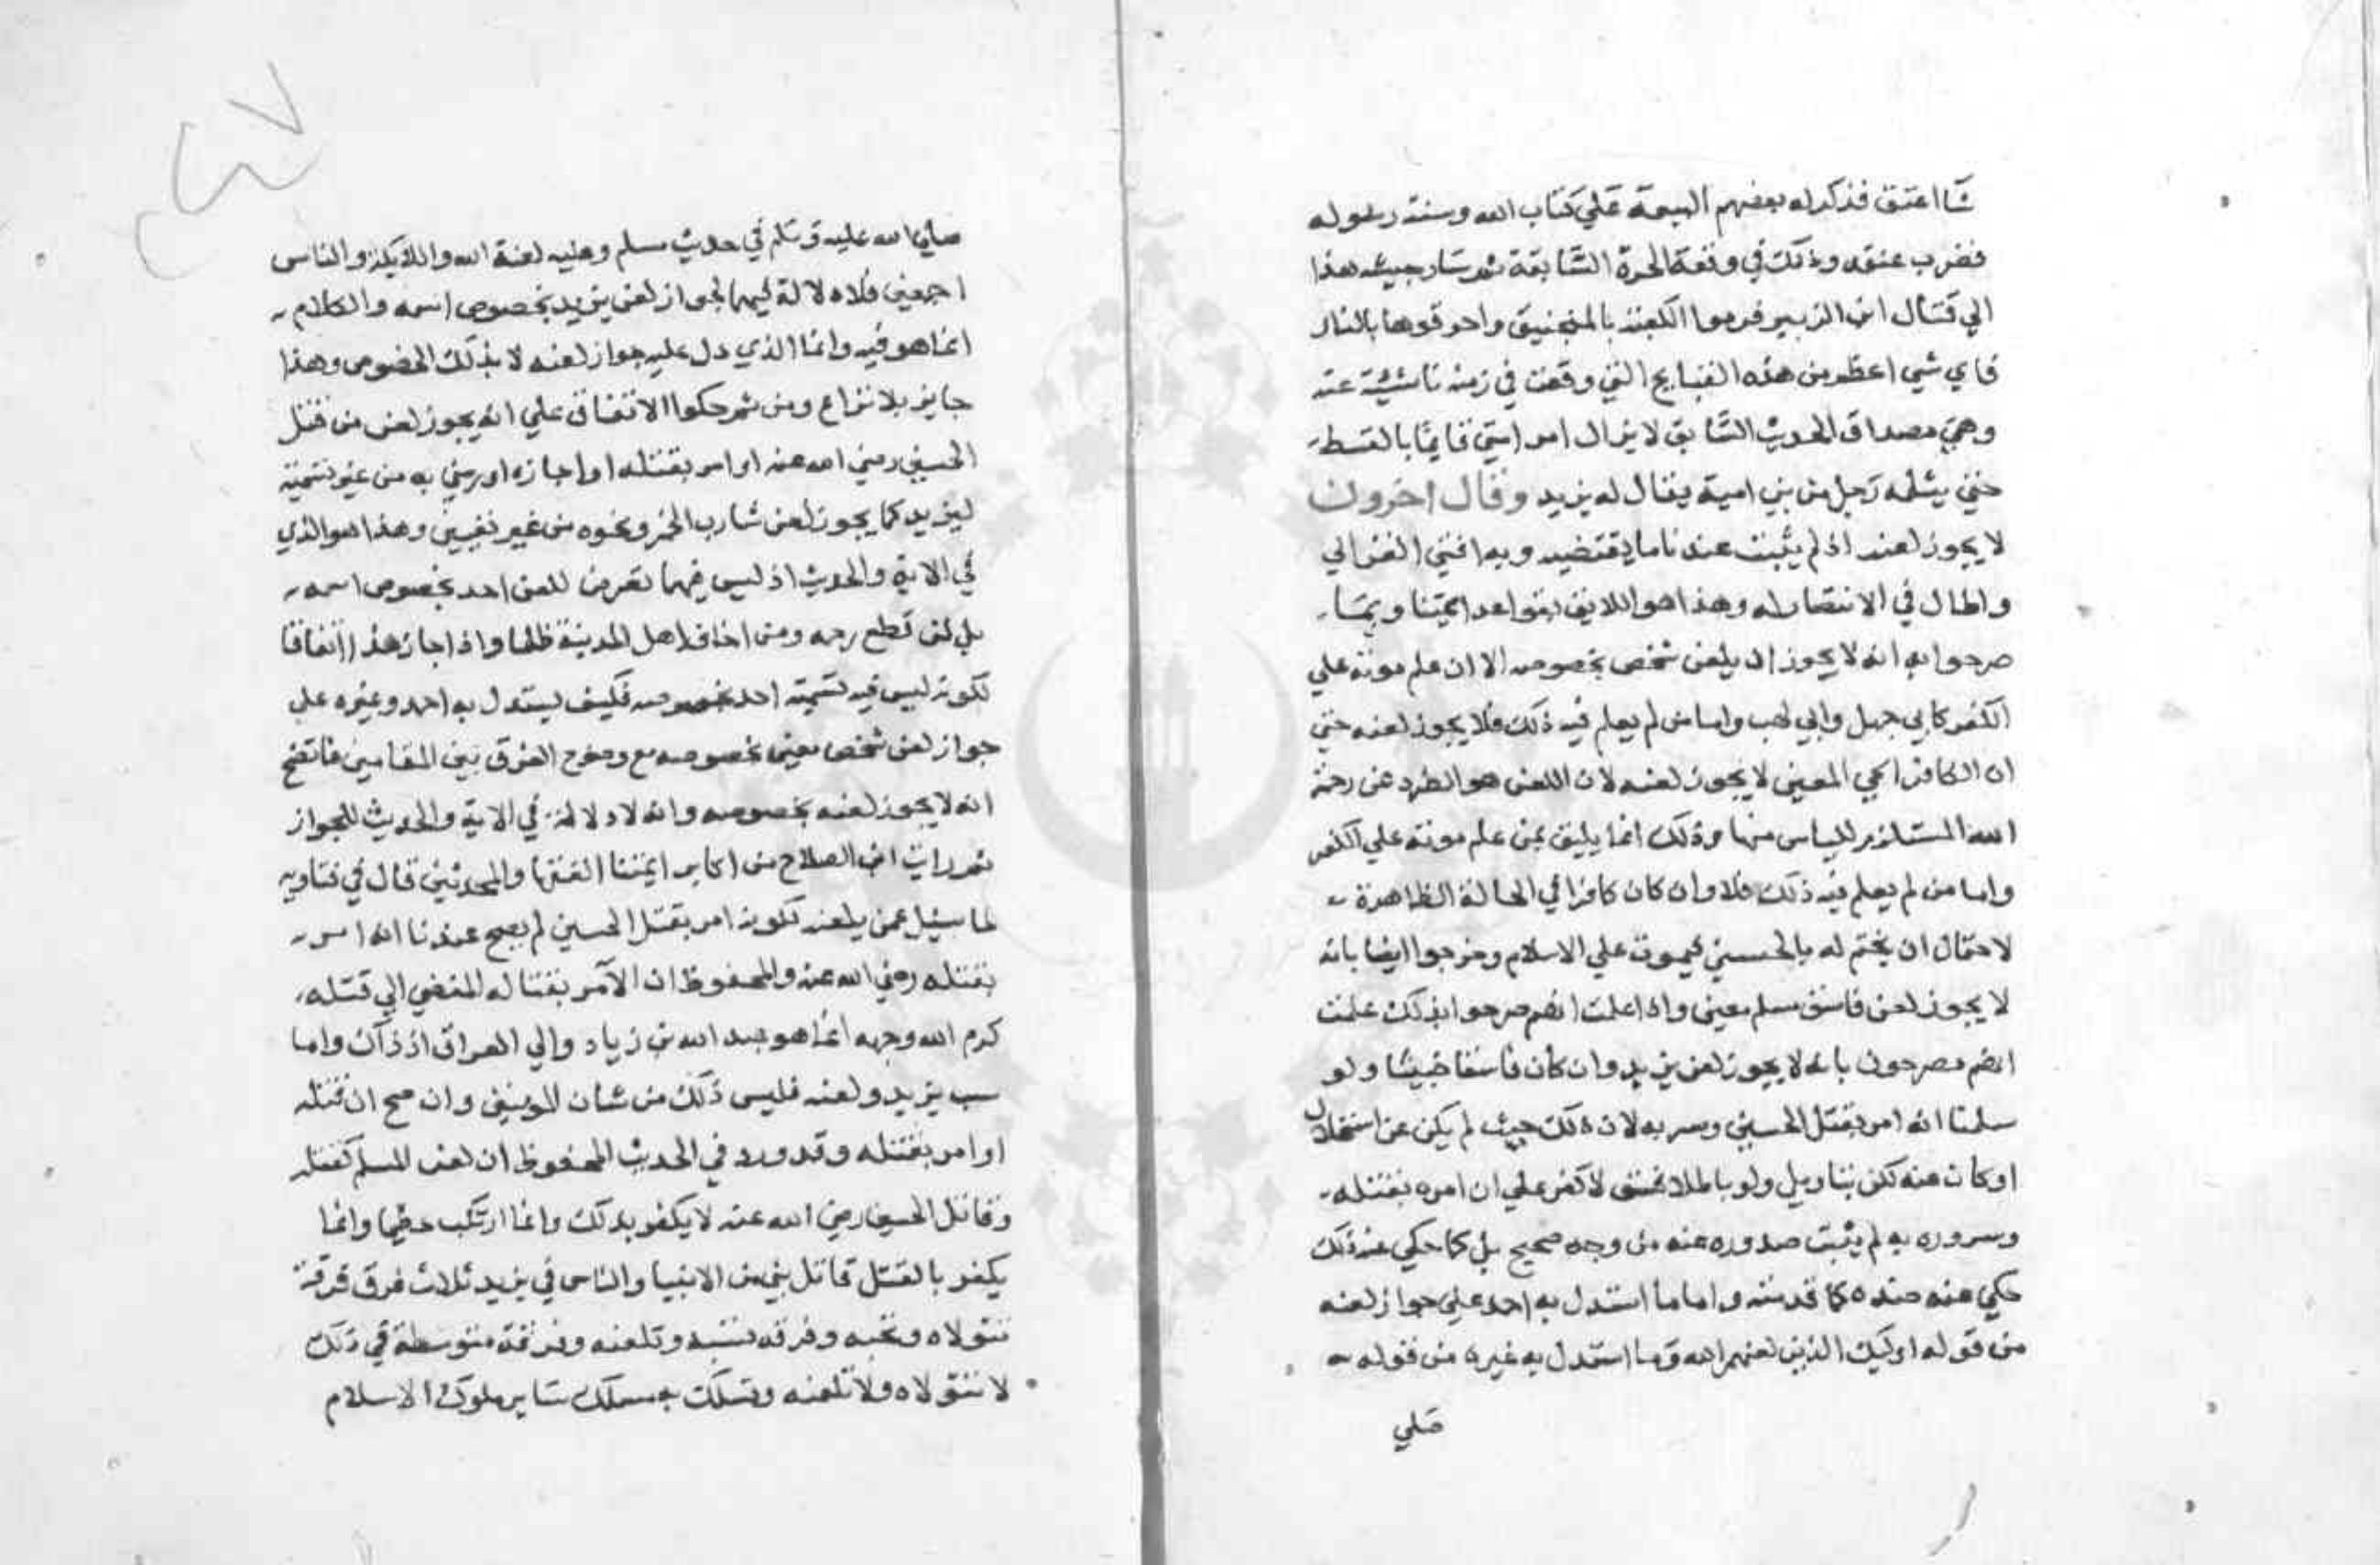 شا اعتق فذكر له بعضهم البيعة علي كتاب الله وسنة رسوله
فضرب عنقه وذلك في وقعة الحرة السابقة ثم سار جيشه هذا
الي قتال ابن الزبير فرموا الكعبة بالمنجنيق واحرقوها بالنار
فاي شي اعظم من هذه القبايح التي وقعت في زمنه ناشئية عنه
وهي مصداق الحديث السابق لا يزال امر امتي قايما بالقسط
حتي يثلمه رجل من بني امية يقال له يزيد وقال اخرون
لا يجوز لعنه اذ لم يثبت عندنا ما يقتضيه وبه افتي الغزالي
واطال في الانتصار له وهذا هو اللايق بقواعد ايمتنا وبما
صرحوا به انه لا يجوز ان يلعن شخص بخصوصه الا ان علم موته علي
الكفر كابي جهل وابي لهب واما من لم يعلم فيه ذلك فلا يجوز لعنه حتي
ان الكافر الحي المعين لا يجوز لعنه لان اللعن هو الطرد عن رحمة
الله المستلزم للياس منها وذلك انما يليق بمن علم موته علي الكفر
واما من لم يعلم فيه ذلك فلا وان كان كافرا في الحالة الظاهرة
لاحتمال ان يختم له بالحسني فيموت علي الاسلام وصرحوا ايضا بانه
لا يجوز لعن فاسق مسلم معين واذا علمت انهم صرحوا بذلك علمت
انهم مصرحون بانه لا يجوز لعن يزيد وان كان فاسقا خبيثا ولو
سلمنا انه امر بقتل الحسين وسر به لان ذلك حيث لم يكن عن استحلال
او كان عنه لكن بتاويل ولو باطلا فسق لا كفر علي ان امره بقتله
وسروره به لم يثبت صدوره عنه من وجه صحيح بل كما حكي عنه ذلك
حكي عنه ضده كما قدمته واما ما استدل به احد علي جواز لعنه
من قوله اوليك الذين لعنهم الله وما استدل به غيره من قوله
صلي
صلي الله عليه وسلم في حديث مسلم وعليه لعنة الله والملايكة والناس
اجمعين فلا دلالة فيهما لجواز لعن يزيد بخصوص اسمه والكلام
انما هو فيه وانما الذي دل عليه جواز لعنه لا بذلك الخصوص وهذا
جايز بلا نزاع ومن ثم حكوا الاتفاق علي انه يجوز لعن من قتل
الحسين رضي الله عنه او امر بقتله او اجازه او رضي به من غير تسمية
ليزيد كما يجوز لعن شارب الخمر ونحوه من غير تعيين وهذا هو الذي
في الاية والحديث اذ ليس فيهما تعرض للعن احد بخصوص اسمه
بل لمن قطع رحمه ومن اخاف اهل المدينة ظلما واذا جاز هذا اتفاقا
لكونه ليس فيه تسمية احد بخصوصه فكيف يستدل به احمد وغيره علي
جواز لعن شخص معين بخصوصه مع وضوح الفرق بين المقامين فاتضح
انه لا يجوز لعنه بخصوصه وانه لا دلالة في الاية والحديث للجواز
ثم رايت ابن الصلاح من اكابر ايمتنا الفقها والمحدثين قال في فتاويه
لما سيل عمن يلعنه لكونه امر بقتل الحسين لم يصح عندنا انه امر
بقتله رضي الله عنه والمحفوظ ان الآمر بقتاله المفضي الي قتله
كرم الله وجهه انما هو عبيد الله بن زياد والي العراق اذ ذاك واما
سب يزيد ولعنه فليس ذلك من شان المومنين وان صح ان قتله
او امر بقتله وقد ورد في الحديث المحفوظ ان لعن المسلم كقتله
وقاتل الحسين رضي الله عنه لا يكفر بذلك وانما ارتكب عظيما وانما
يكفر بالقتل قاتل نبي من الانبيا والناس في يزيد ثلاث فرق فرقة
تتولاه وتحبه وفرقة تسبه وتلعنه وفرقة متوسطة في ذلك
لا تتولاه ولا تلعنه وتسلك به مسلك ساير ملوك الاسلام